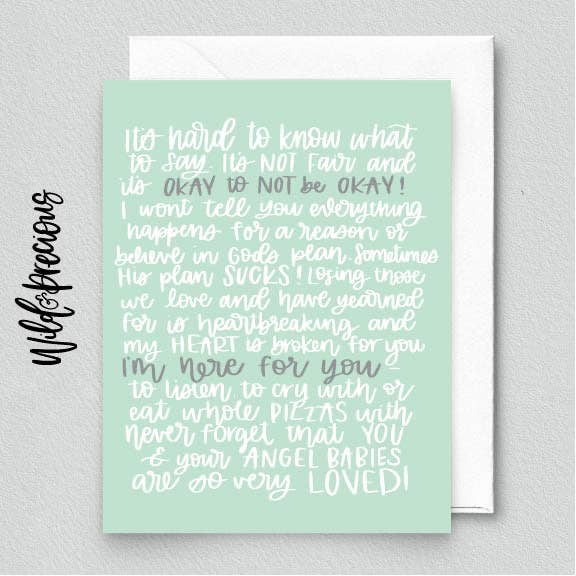 Wild & Precious
Its hard to know what
to say. Its NOT Fair and
its OKAY to NOT be OKAY!
I wont tell you everything
happens for a reason or
believe in Gods plan. Sometimes
His plan SUCKS! Losing those
we love and have yearned
for is heartbreaking and
my HEART is broken for you
I'm here for you –
to listen, to cry with or
eat whole PIZZAS with
never forget that YOU
& your ANGEL BABIES
are so very LOVED!